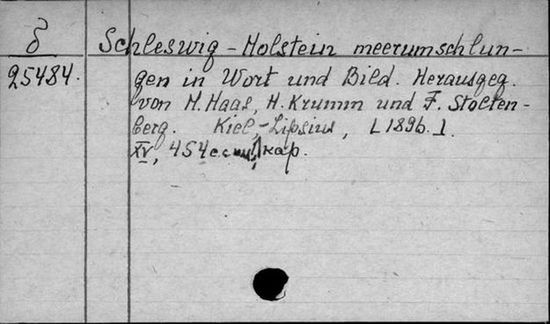 δ Schleswig-Holstein meerumschlun-
25484. gen in Wort und Bild. Herausgeg.
von H. Haas, H. Krumm und F. Stolten-
berg. Kiel, Lipsius, [1896.].
XV, 454 с. с илл., 1 кар.